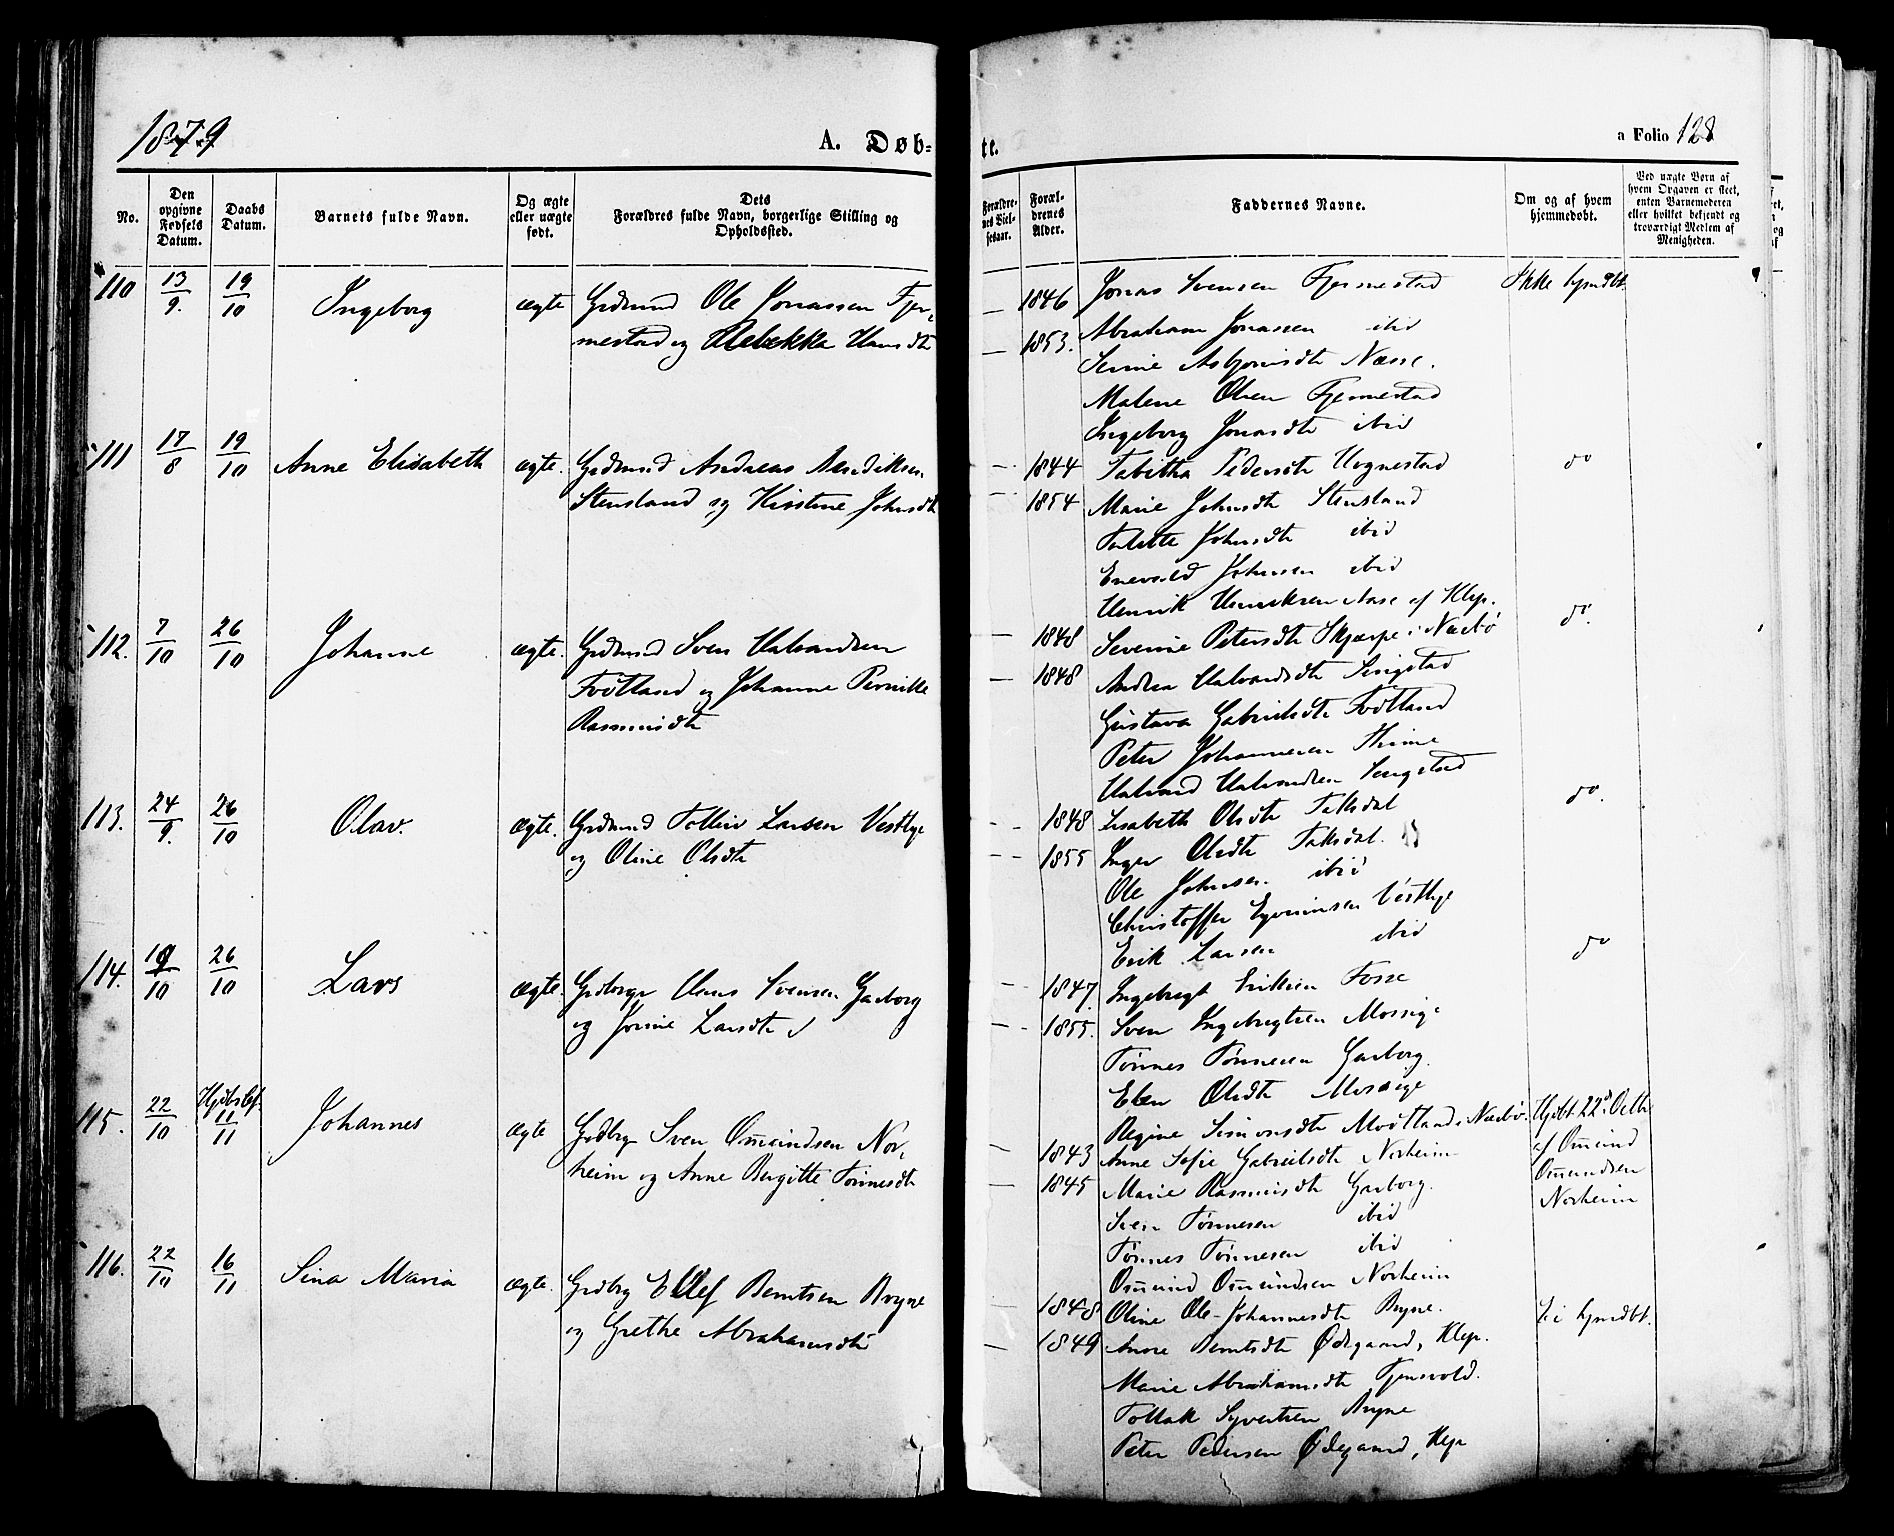 1879
A. Døb-
te.
a Folio 128
No.
Den opgivne Fødsels Datum.
Daabs Datum.
Barnets fulde Navn.
Og ægte eller uægte født.
Dets Forældres fulde Navn, borgerlige Stilling og Opholdssted.
Forældre-nes Viel-sesaar.
Foræl-drenes Alder.
Faddernes Navne.
Om og af hvem hjemmedøbt.
Ved uægte Børn af hvem Opgaven er skeet, enten Barnemoderen eller hvilket bekjendt og troværdigt Medlem af Menigheden.
110 13/9. 19/10 Ingeborg ægte Grdmd Ole Jonassen Fjer-
mestad og Rebekka Hansdt
1846
1853.
Jonas Svensen Fjermestad
Abraham Jonassen ibid
Serine Asbjørnsdt Næsse.
Malene Olsen Fjermestad
Ingeborg Jonasdt ibid
Ikke hjmdbt.
111 17/8 19/10 Anne Elisabeth ægte. Grdmd Andreas Hendiksen
Stensland og Kirstine Johnsdt
1844
1854
Tabitha Pedersdt Hognestad
Marie Johnsdt Stensland
Tabitte Johnsdt ibid
Enevald Johnsen ibid
Henrik Henriksen Aase af Klep.
do
112. 7/10 26/10 Johanne ægte. Grdmd Sven Halvardsen
Fodtland og Johanne Pernille
Rasmusdt
1848
1848
Severine Petersdt Skjærpe i Nærbø
Andrea Halvardsdt Lengstad
Gustava Gabrielsdt Fodtland
Peter Johannesen Thime
Halvard Halvardsen Lengstad
do.
113. 24/9. 26/10 Olav. ægte. Grdmd Tollev Larsen Vestlye
og Oline Olsdt
1848
1855
Lisabeth Olsdt Taksdal
Inger Olsdt Taksdal.
Ole Johnsen ibid
Christoffer Egeninsen Vestlye
Erik Larsen ibid
do.
114. 19/10 26/10 Lars ægte. Grdbrgr Hans Svensen Garborg
og Jorine Larsdt
1847.
1855.
Ingebregt Eriksen Fosse
Sven Ingebregtsen Mossige
Tønnes Tønnesen Garborg.
Elen Olsdt Mossige
Regine Simonsdt Modtland, Nærbø.
do
115. 22/10 Hjdtslef. 11/11 Johannes ægte Grdbrgr Sven Omundsen Nor-
heim og Anne Birgitte Tønnesdt
1843
1845
Anne Sofie Gabrielsdt Norheim
Marie Rasmusdt Garborg.
Sven Tønnesen ibid
Tønnes Tønnesen ibid
Omund Omundsen Norheim
Hjdbt 22d Octb.
af Omund
Omundsen
Norheim
116. 22/10 16/11 Sina Maria ægte. Grdbrgr Ellef Berntsen Bryne
og Grethe Abrahamsdt
1848
1849
Oline Ole-Johannesdt Bryne.
Anne Berntsdt Ødegaard, Klep.
Marie Abrahamsdt Tjensvold.
Tollak Syvertsen Bryne
Peter Pedersen Ødegaard, Klep
I: i hjmdbt.